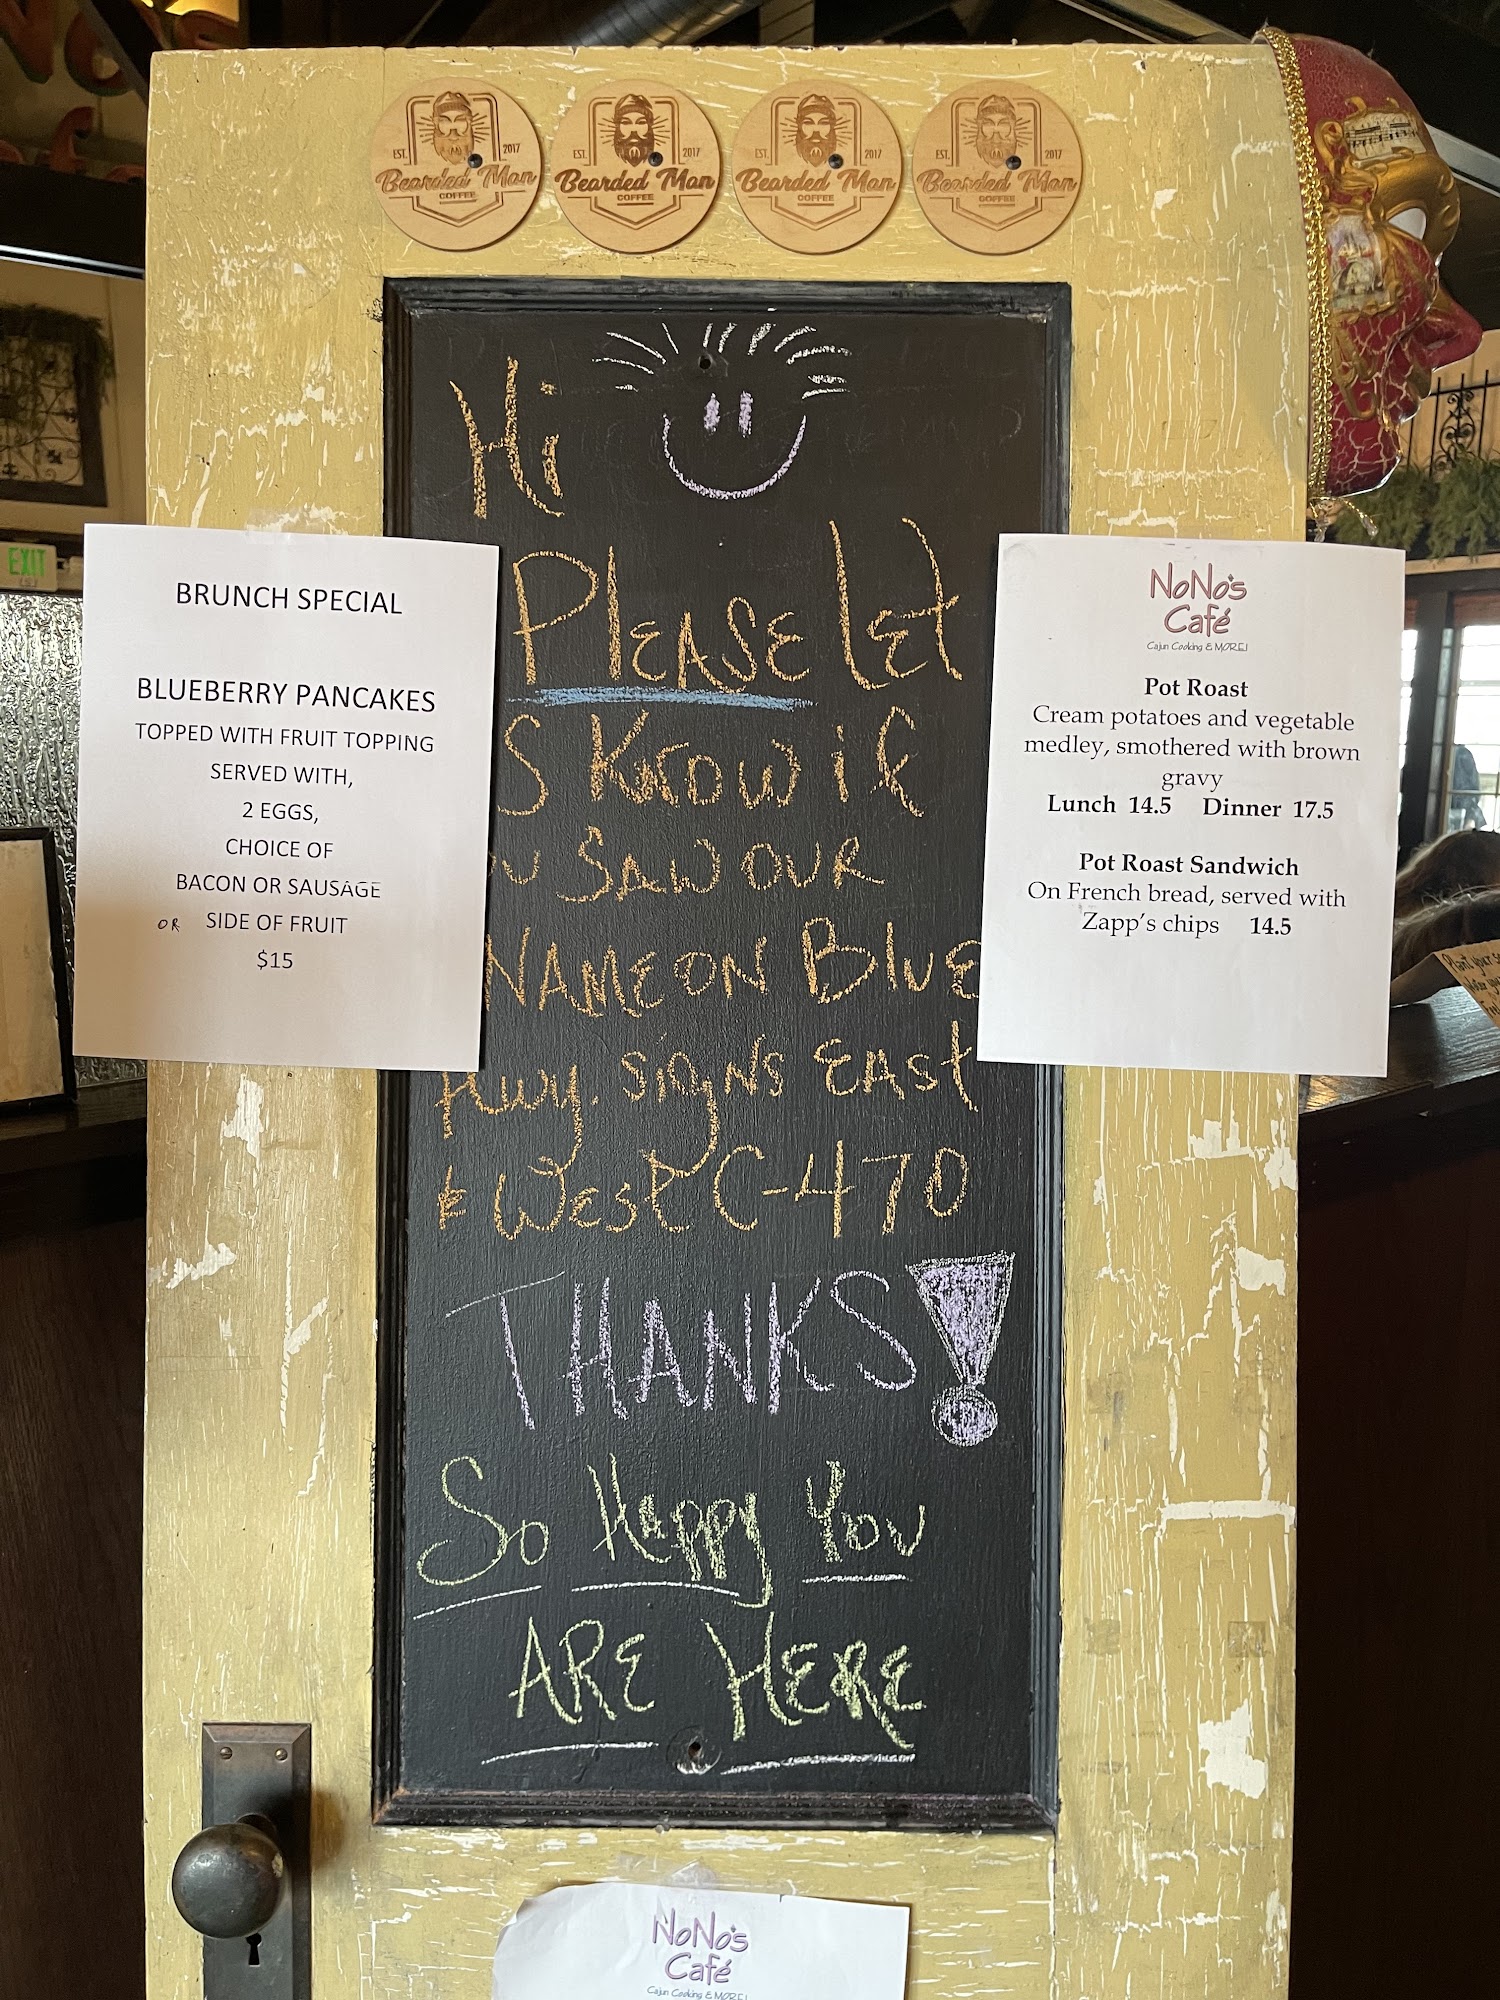 EST. 2017
Bearded Man
COFFEE
EST. 2017
Bearded Man
COFFEE
EST. 2017
Bearded Man
COFFEE
EST. 2017
Bearded Man
COFFEE
Hi
Please Let
S Know if
U SAW OUR
NAME ON BLUE
Hwy. SIGNS EAST
& WEST C-470
THANKS!
So Happy You
ARE HERE
EXIT
BRUNCH SPECIAL
BLUEBERRY PANCAKES
TOPPED WITH FRUIT TOPPING
SERVED WITH,
2 EGGS,
CHOICE OF
BACON OR SAUSAGE
OR SIDE OF FRUIT
$15
NoNo's
Café
Cajun Cooking & MORE!
Pot Roast
Cream potatoes and vegetable
medley, smothered with brown
gravy
Lunch 14.5 Dinner 17.5
Pot Roast Sandwich
On French bread, served with
Zapp's chips 14.5
Plant your
NoNo's
Café
Cajun Cooking & MORE!